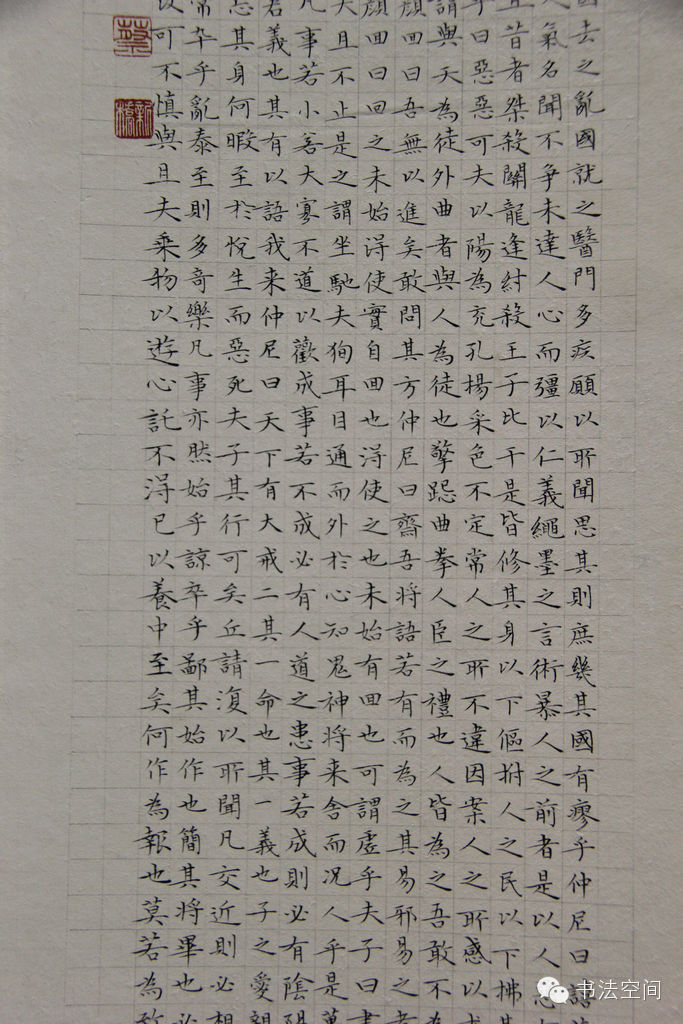 國去之亂國就之醫門多疾願以所聞思其則庶幾其國有廖乎仲尼曰譆
人氣名聞不爭未達人心而彊以仁義繩墨之言術暴人之前者是以人惡
且昔者桀殺關龍逢紂殺王子比干是皆修其身以下傴拊人之民以下拂其
乎曰惡惡可夫以陽為充孔揚采色不定常人之所不違因案人之所感以求
謂與天為徒外曲者與人為徒也擎跽曲拳人臣之禮也人皆為之吾敢不為
顏回曰吾無以進矣敢問其方仲尼曰齋吾将語若有而為之其易邪易之者
顏回曰回之未始淂使實自回也淂使之也未始有回也可謂虛乎夫子曰
夫且不止是之謂坐馳夫狥耳目通而外於心知鬼神将来舍而况人乎是萬
凡事若小若大寡不道以歡成事若不成必有人道之患事若成則必有陰陽
若義也其有以語我来仲尼曰天下有大戒二其一命也其一義也子之愛親
忘其身何暇至於悅生而惡死夫子其行可矣丘請復以所聞凡交近則必相
常卒乎亂泰至則多奇樂凡事亦然始乎諒卒乎鄙其始作也簡其将畢也必
設可不慎與且夫乘物以遊心託不淂已以養中至矣何作為報也莫若為致
蔡
新橋
书法空间